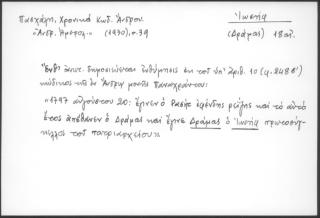 Πασχάλη, Χρονικά Κωδ. Άνδρου.
Ἰωσήφ
"Ἀνδρ. Ἡμερολ.-" (1930), σ. 39
(Δράμας) 18 αἰ.
Ἔνθ' ἀνωτ. δημοσιεύεται ἐνθύμησις ἐκ τοῦ ὑπ' ἀριθ. 10 (φ. 248β)
κώδικος τῆς ἐν Ἄνδρῳ μονῆς Παναχράντου:
"1797 αὐγούστου 20: ἔγινεν ὁ Ρασὴχ ἐφέντης ρεΐζης καὶ τὸ αὐτὸ
ἔτος ἀπέθανεν ὁ Δράμας καὶ ἔγινε Δράμας ὁ Ἰωσὴφ πρωτοσύγ-
κελλος τοῦ πατριαρχείου".